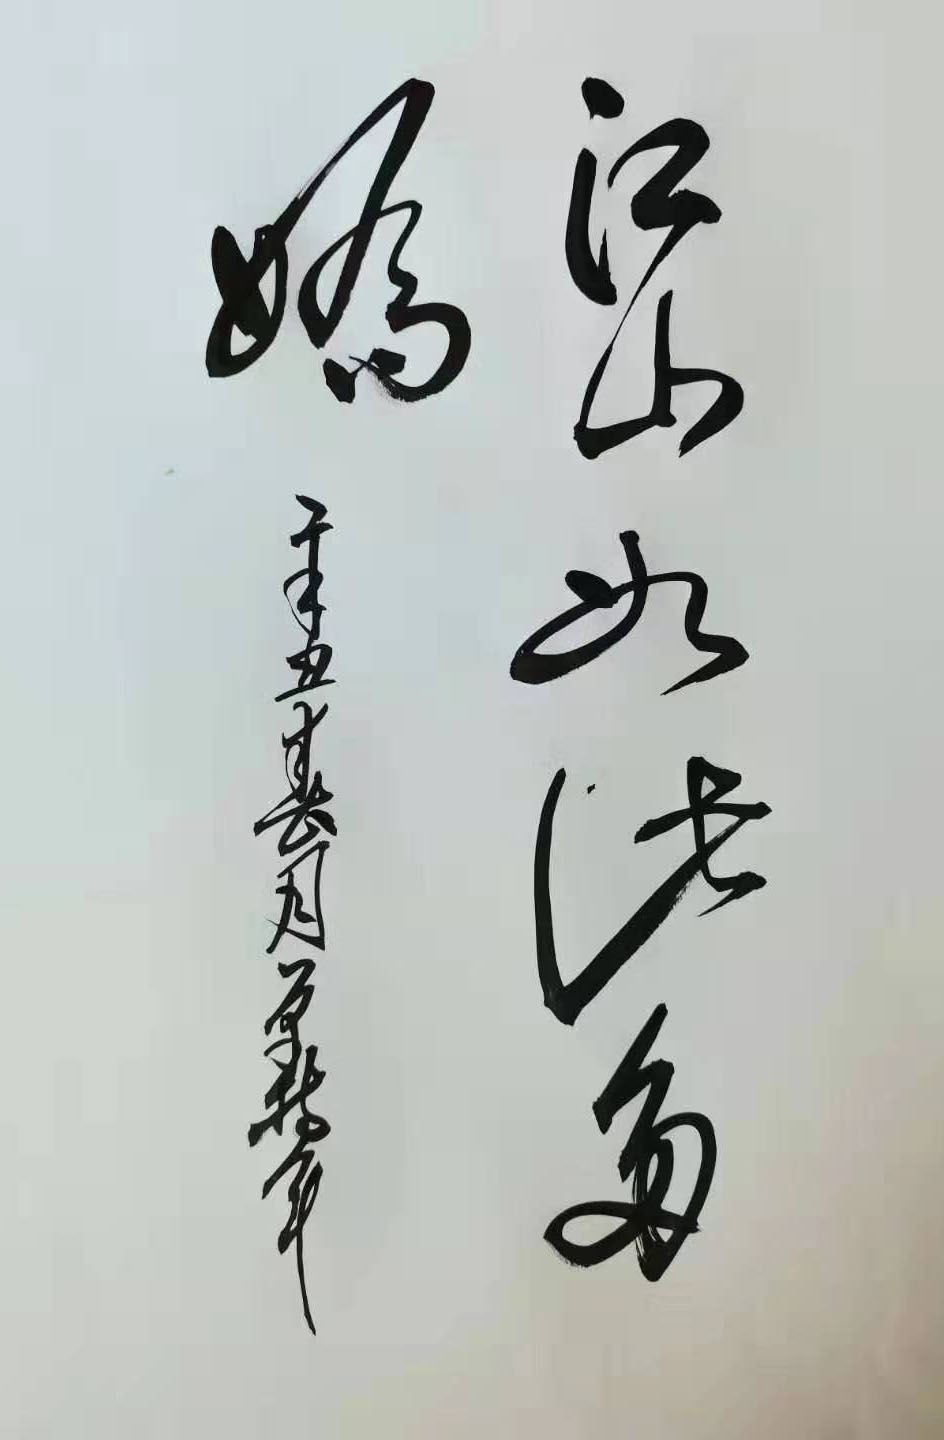 江山如此多
娇
辛丑春月